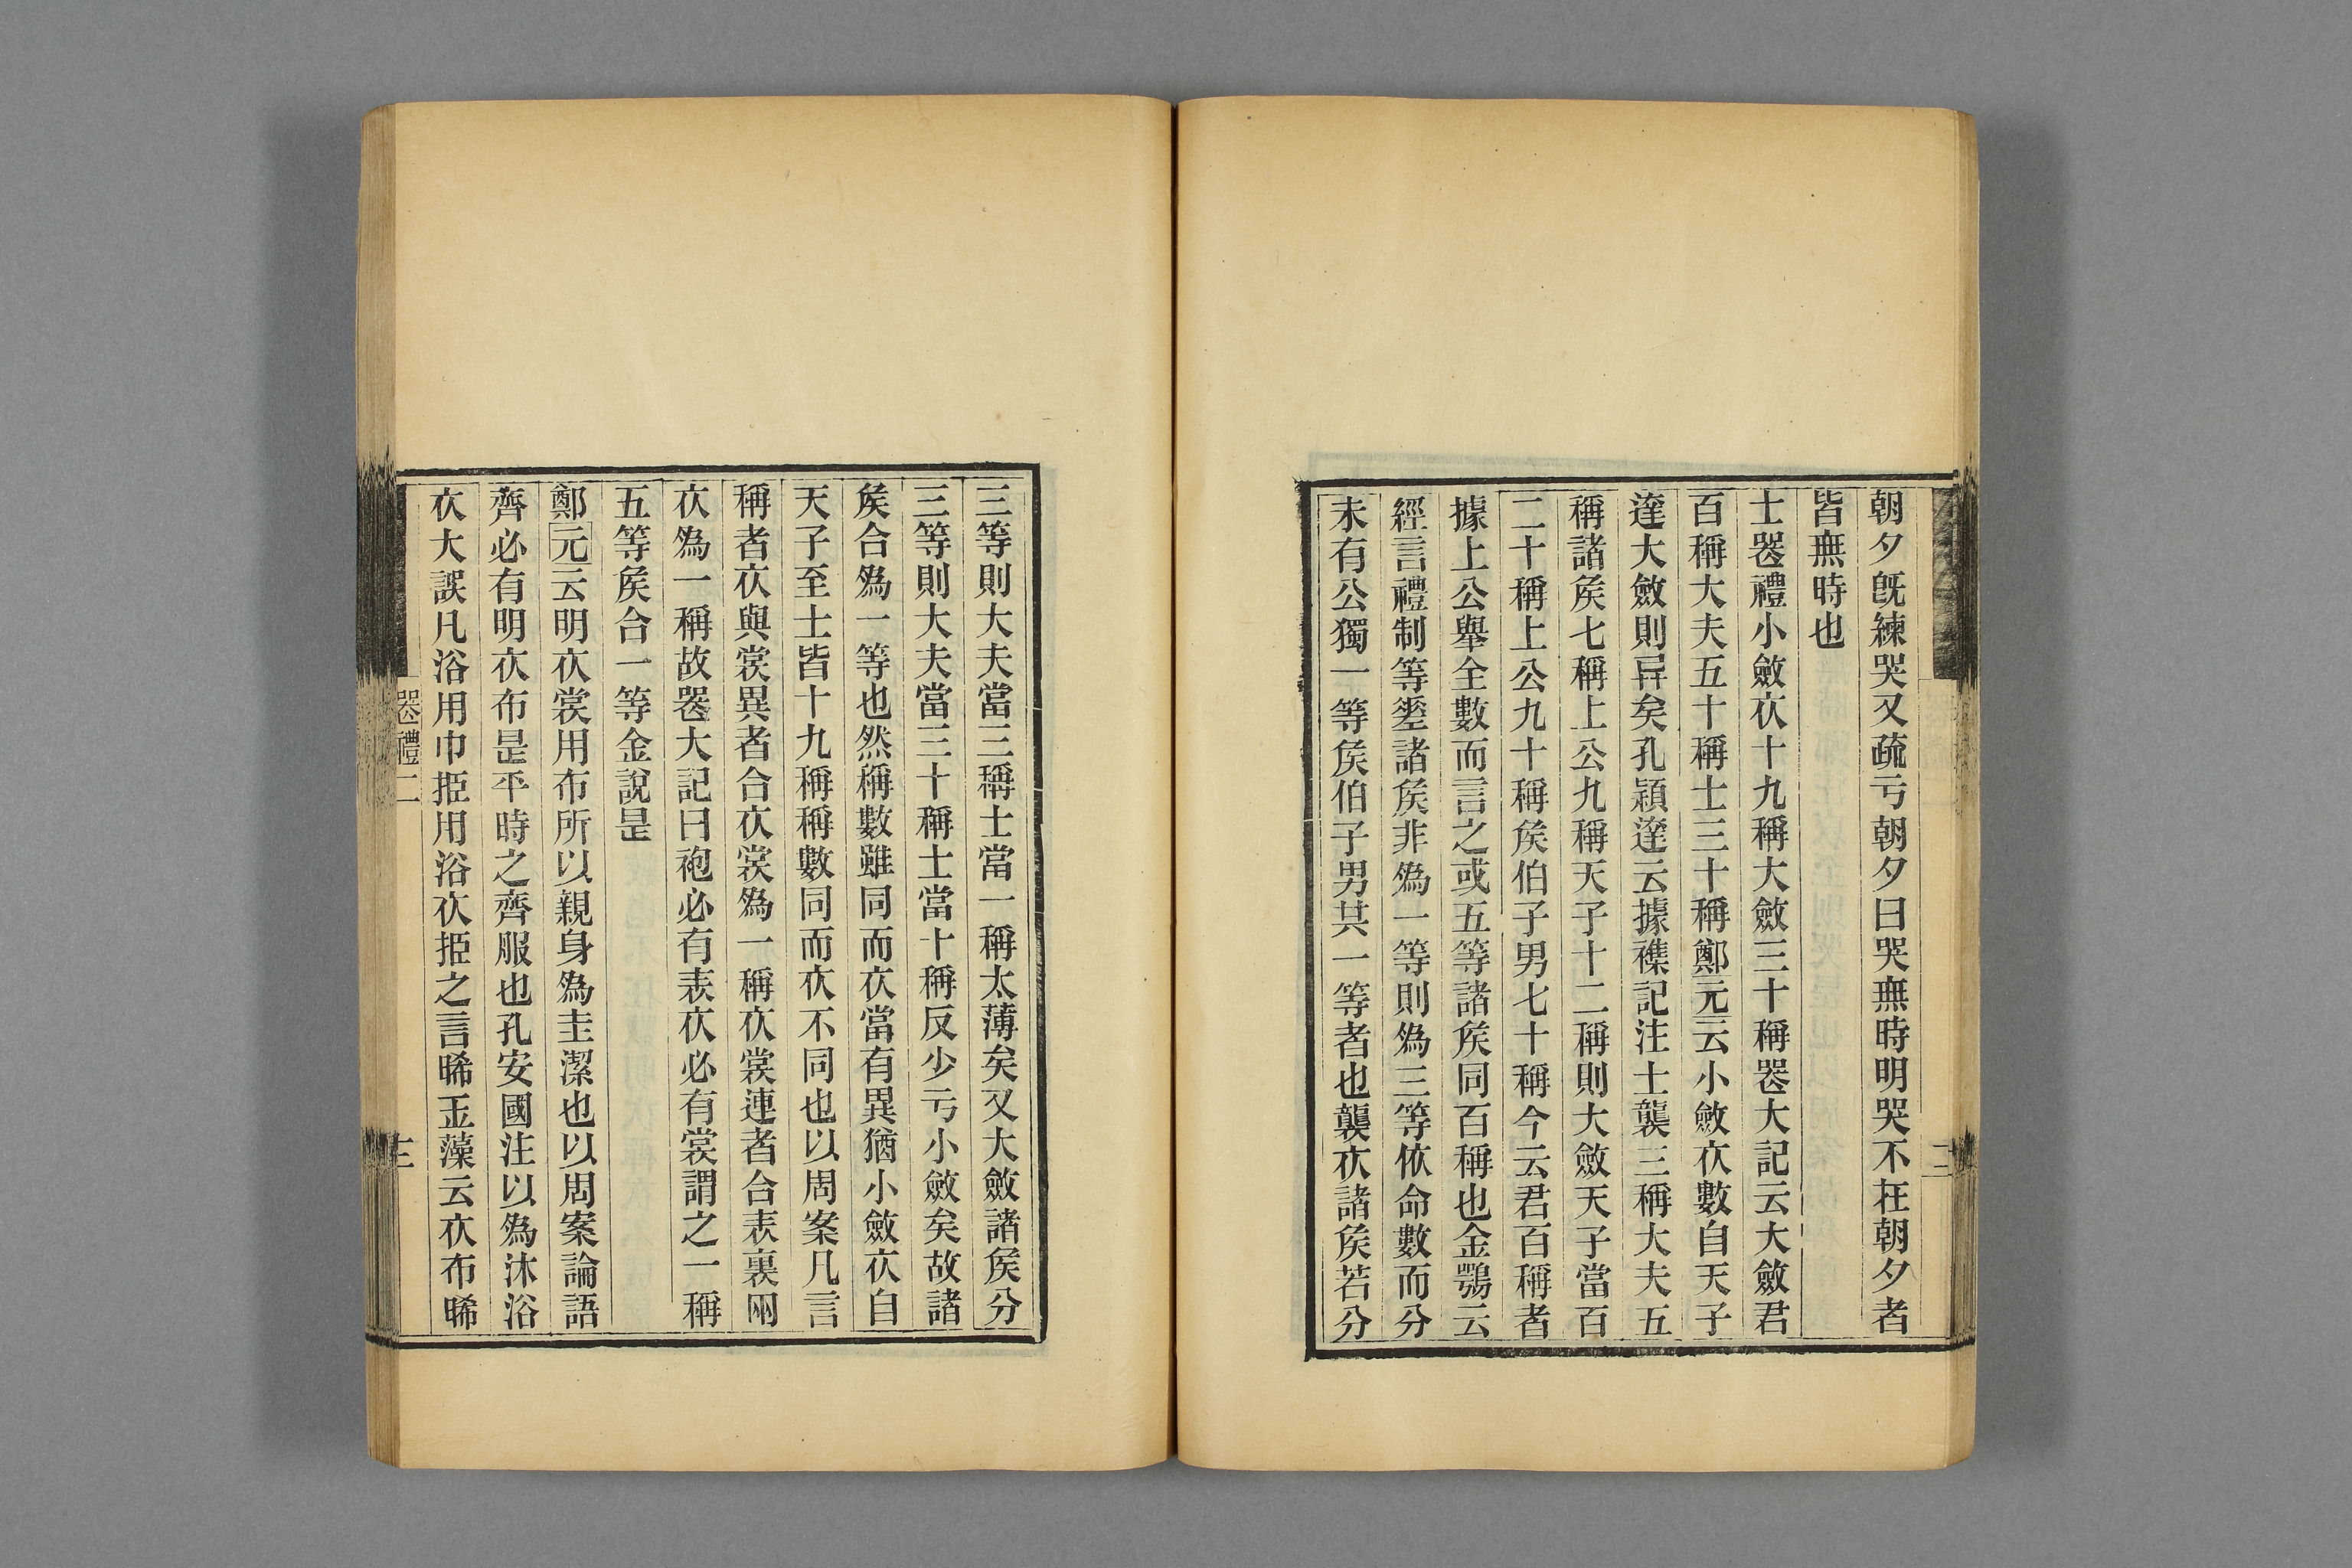 朝夕旣練哭又疏亏朝夕曰哭無時明哭不在朝夕者
皆無時也
士喪禮小斂衣十九稱大斂三十稱喪大記云大斂君
百稱大夫五十稱士三十稱鄭元云小斂衣數自天子
達大斂則异矣孔穎達云據襍記注士襲三稱大夫五
稱諸矦七稱上公九稱天子十二稱則大斂天子當百
二十稱上公九十稱矦伯子男七十稱今云君百稱者
據上公舉全數而言之或五等諸矦同百稱也金鶚云
經言禮制等差諸矦非爲一等則爲三等依命數而分
未有公獨一等矦伯子男共一等者也襲衣諸矦若分
三等則大夫當三稱士當一稱太薄矣又大斂諸矦分
三等則大夫當三十稱士當十稱反少亏小斂矣故諸
矦合爲一等也然稱數雖同而衣當有異猶小斂衣自
天子至士皆十九稱稱數同而衣不同也以周案凡言
稱者衣與裳異者合衣裳爲一稱衣裳連者合表裏兩
衣爲一稱故喪大記曰袍必有表衣必有裳謂之一稱
五等矦合一等金說是
鄭元云明衣裳用布所以親身爲圭潔也以周案論語
齊必有明衣布是平時之齊服也孔安國注以爲沐浴
衣大誤凡浴用巾挋用浴衣挋之言晞玉藻云衣布晞
喪禮二
三